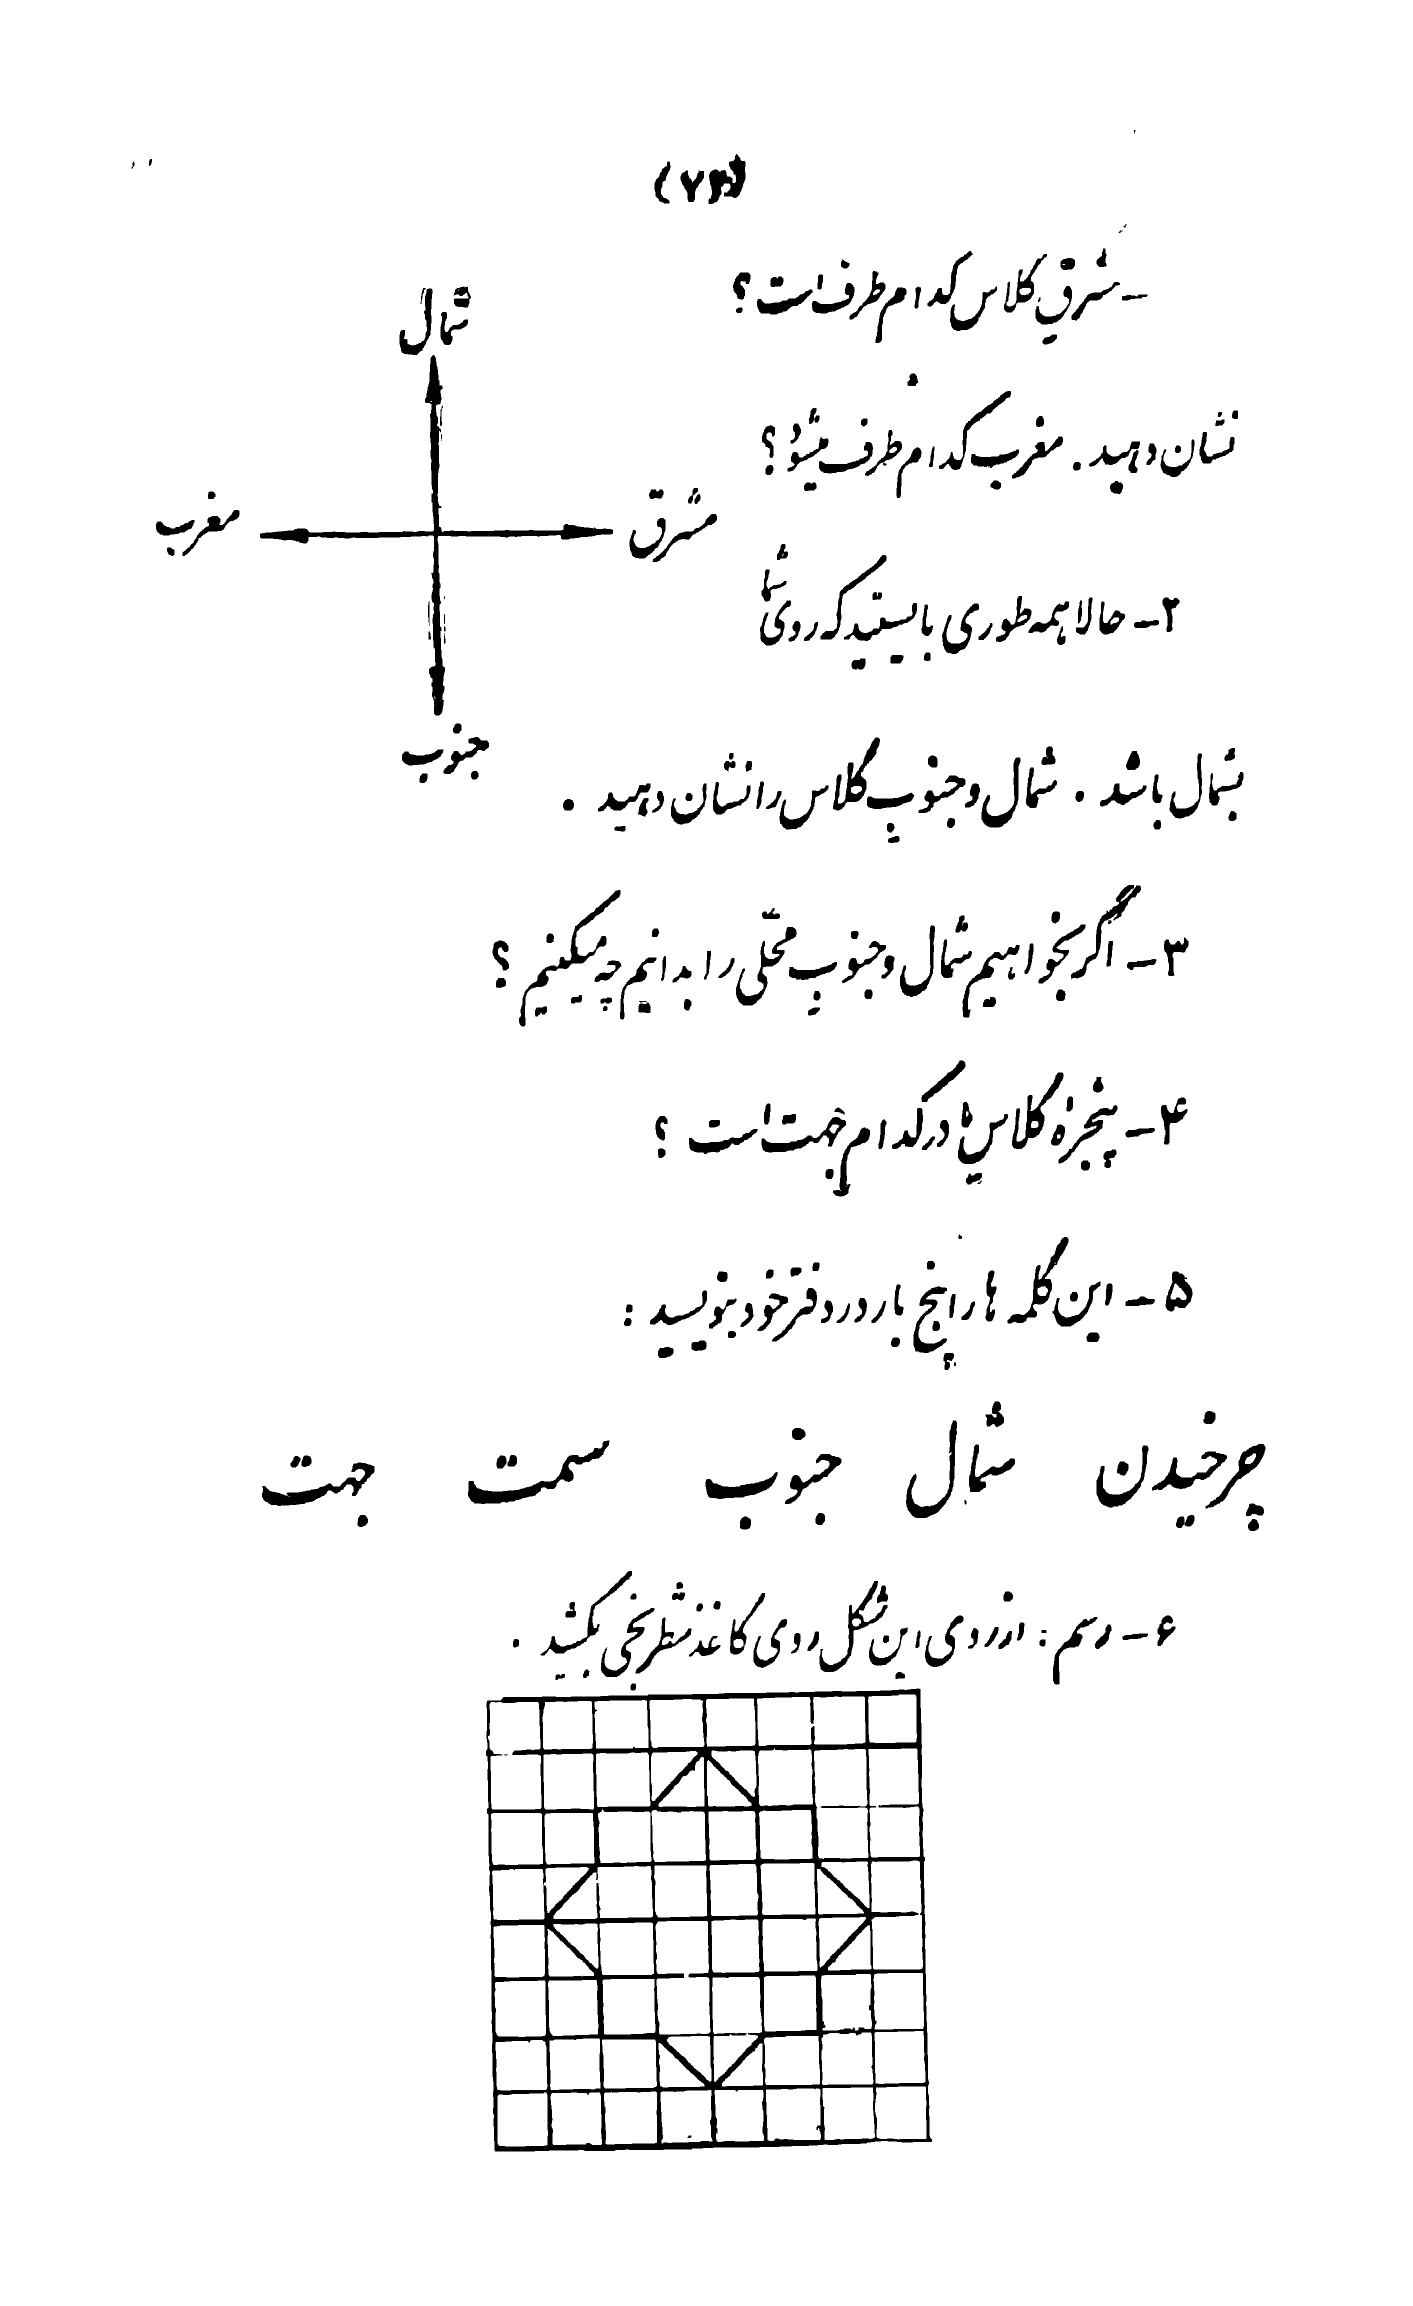 - شرقِ کلاس کدام طرف است؟
نشان دهید. مغرب کدام طرف میشود؟
۲- حالا همه طوری بایستید که روی شما
بشمال باشد. شمال و جنوبِ کلاس را نشان دهید.
شمال
مغرب
مشرق
جنوب
۳- اگر بخواهیم شمال و جنوبِ محلّی را بدانیم چه میکنیم؟
۴- پنجرهٔ کلاسِ ما در کدام جهت است؟
۵- این کلمه ها را پنج بار در دفتر خود بنویسید:
چرخیدن شمال جنوب سمت جهت
۶- رسم: از روی این شکل روی کاغذ شطرنجی بکشید.